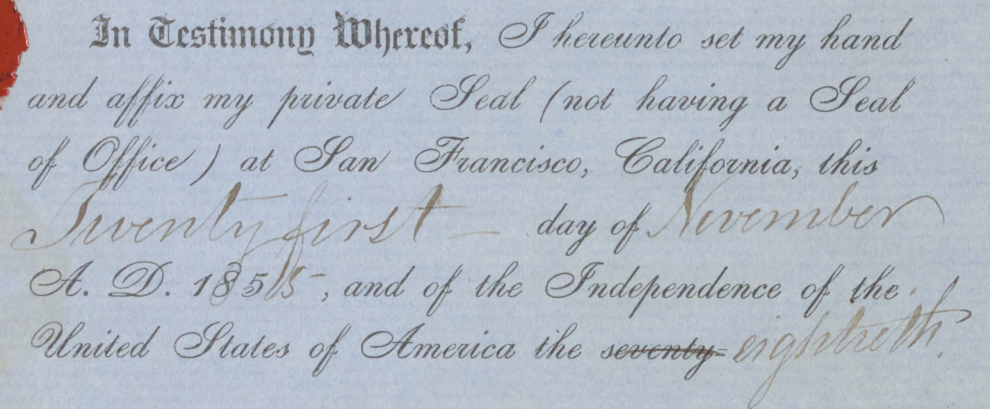 In Testimony Whereof, I hereunto set my hand
and affix my private Seal (not having a Seal
of Office) at San Francisco, California, this
Twenty first — day of November
A. D. 1855, and of the Independence of the
United States of America the seventy- eightieth.